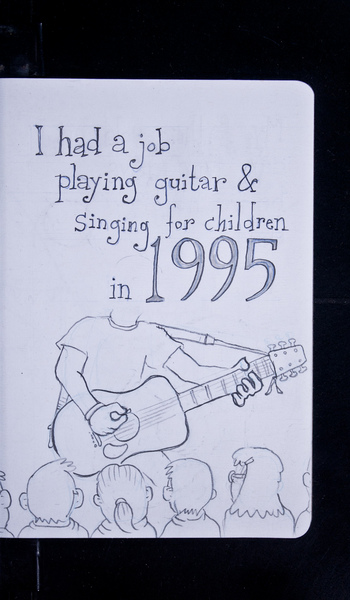 I had a job
playing guitar &
singing for children
in 1995